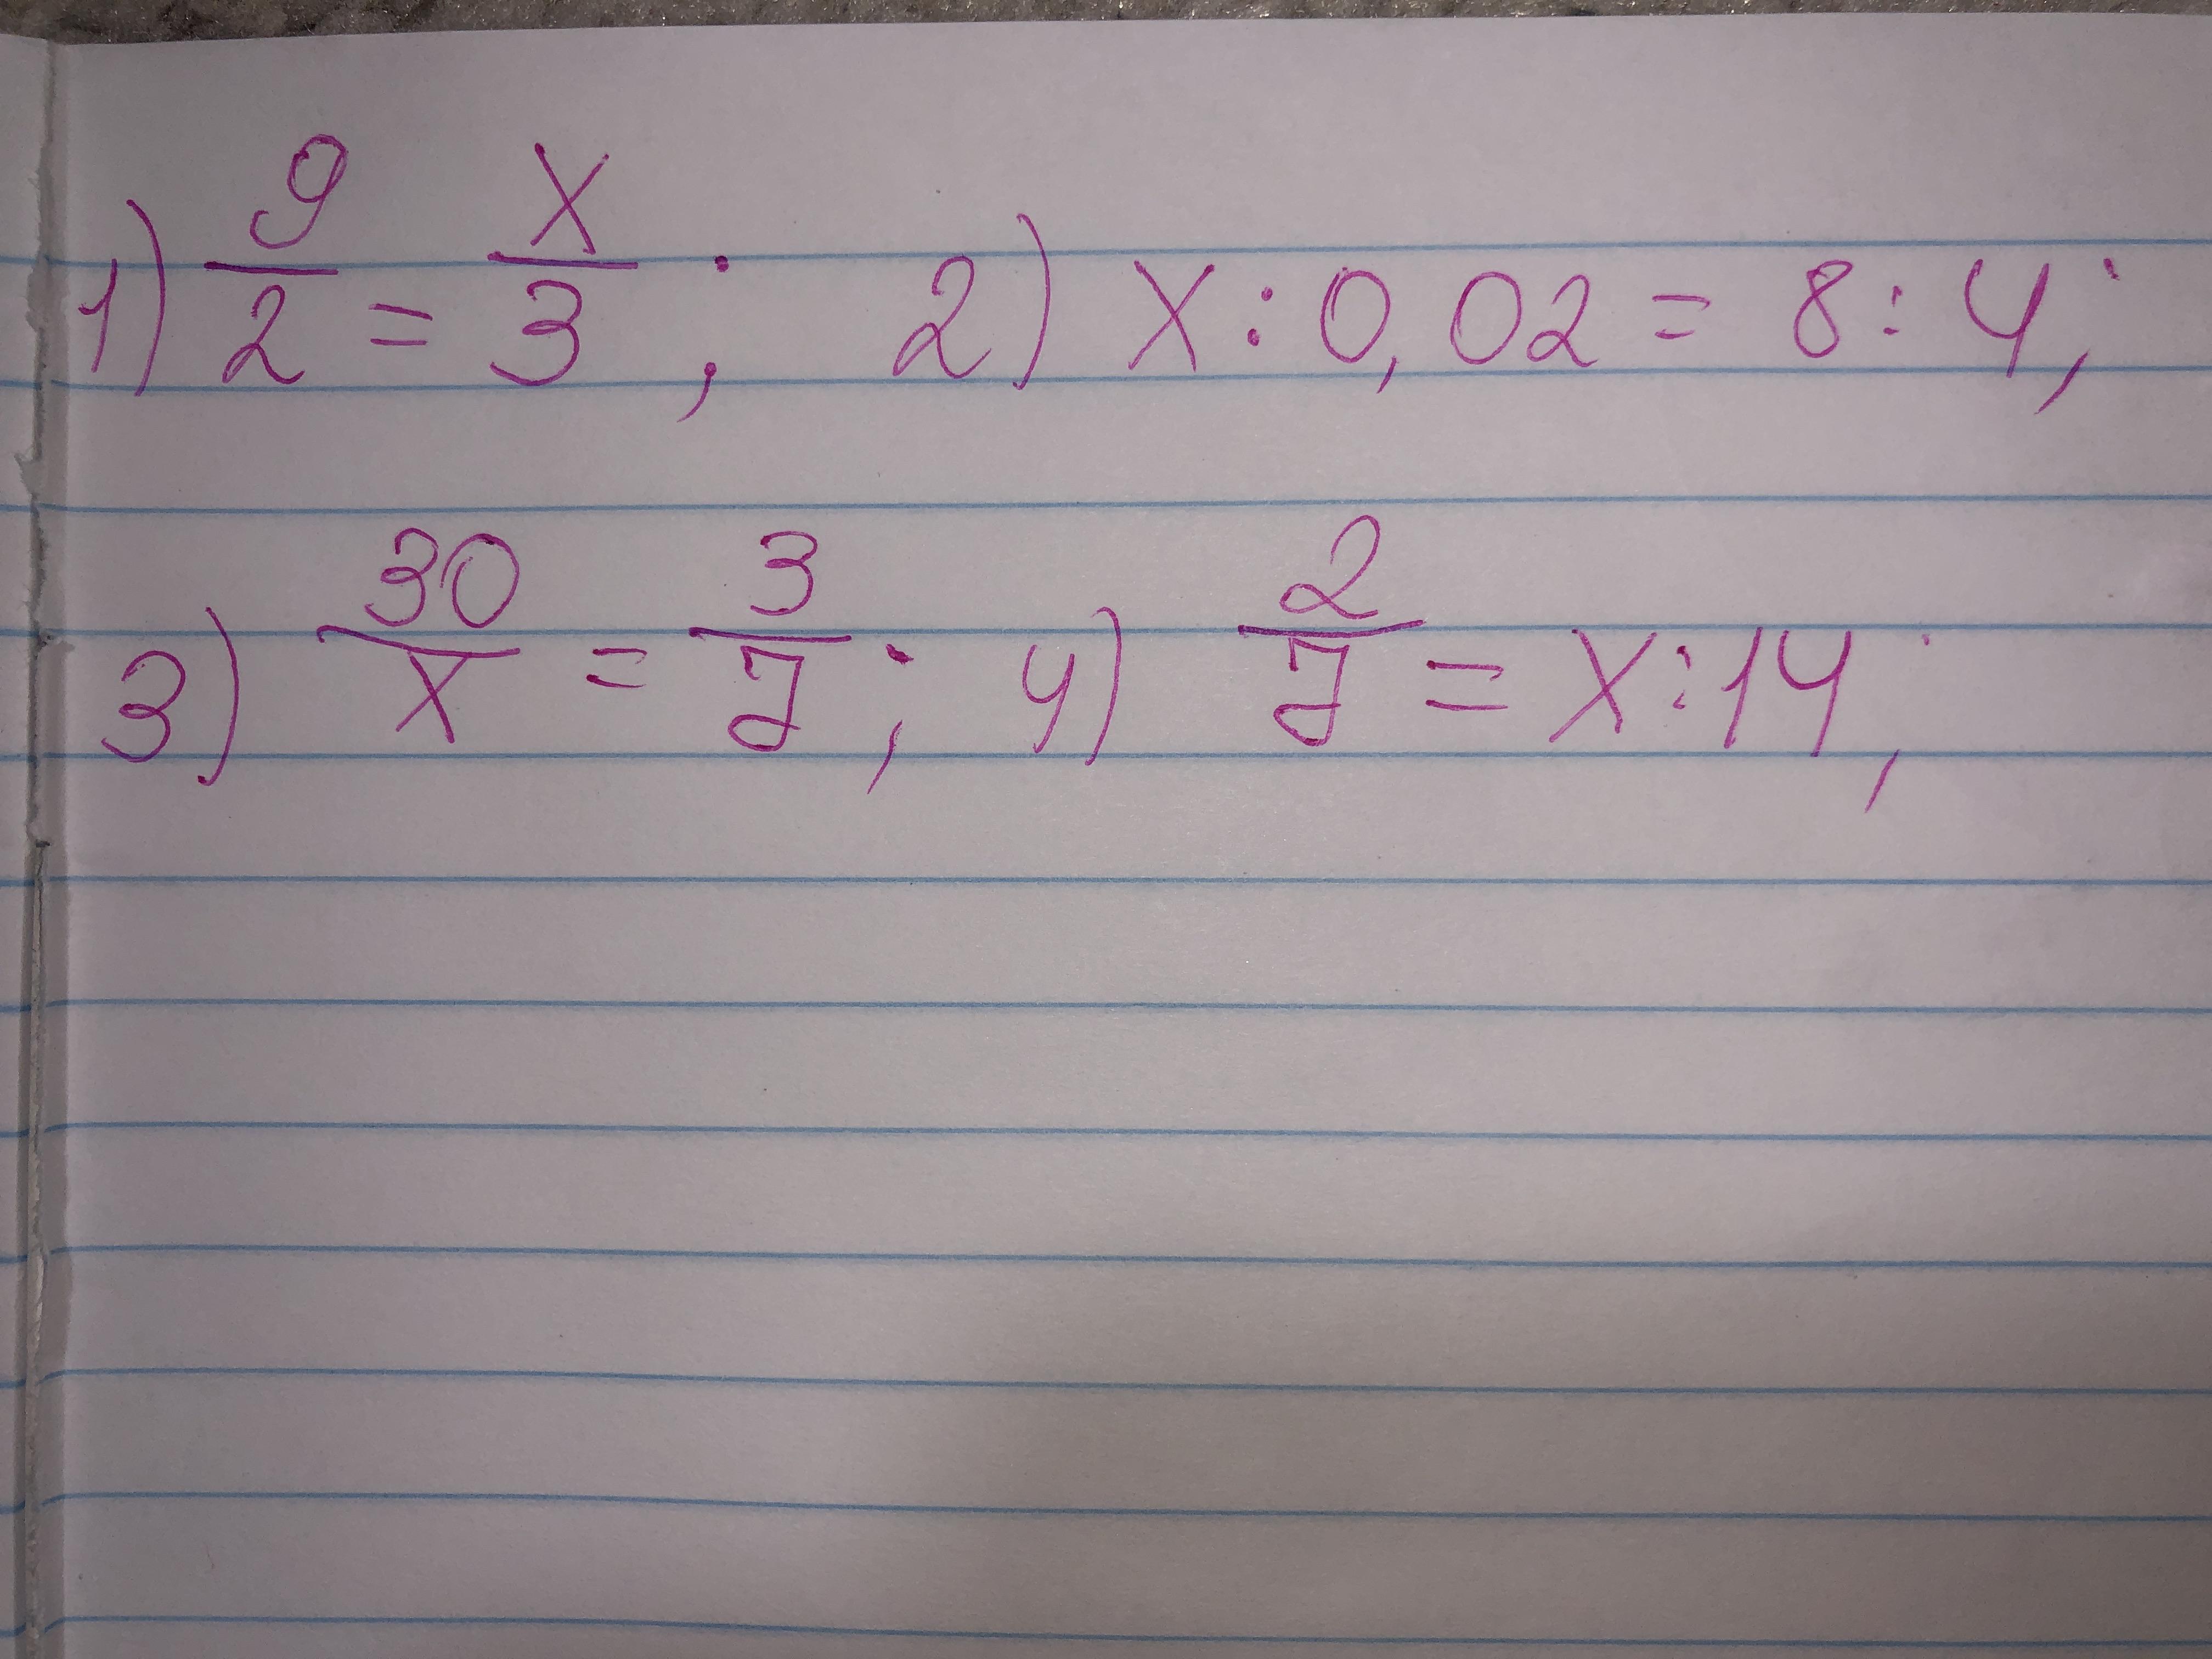 1) 9/2 = x/3 ; 2) x : 0,02 = 8 : 4;
3) 30/x = 3/7 ; 4) 2/7 = x : 14;